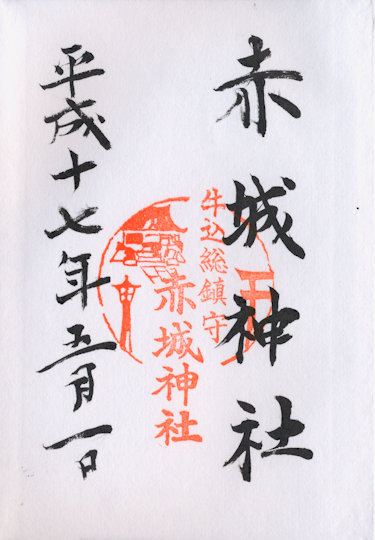 赤城神社
牛込総鎮守
赤城神社
平成十七年五月一日